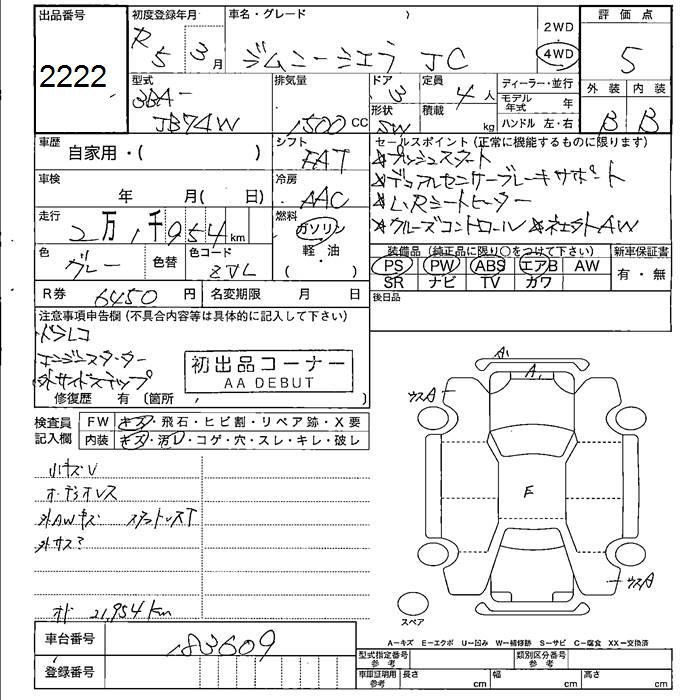 出品番号
2222
初度登録年月
R5 3月
車名・グレード
ジムニーシエラ JC
2WD
4WD
評価点
5
外装 内装
B B
型式
3BA-
JB74W
排気量
1500 CC
ドア
3
形状
SW
定員
4人
積載
kg
ディーラー・並行
モデル年式 年
ハンドル 左・右
車歴
自家用・( )
シフト
FAT
セールスポイント (正常に機能するものに限ります)
☆プッシュスタート
☆デュアルセンサーブレーキサポート
☆L/Rシートヒーター
☆クルーズコントロール ☆社外AW
車検
年 月( 日)
冷房
AAC
走行
2万1千954km
燃料
ガソリン
軽・油
( )
色
グレー
色替
色コード
ZVL
装備品 (純正品に限り○をつけて下さい)
PS PW ABS エアB AW
SR ナビ TV カワ
新車保証書
有・無
R券 6450円
名変期限 月 日
後日品
注意事項申告欄 (不具合内容等は具体的に記入して下さい)
ドラレコ
エンジンスターター
外サイドステップ
初出品コーナー
AA DEBUT
修復歴 有 (箇所 )
検査員記入欄
FW キズ・飛石・ヒビ割・リペア跡・X要
内装 キズ・汚レ・コゲ・穴・スレ・キレ・破レ
小キズV
オーディオレス
外AWキズ
外サス?
オド 21,954km
A1
A1
ウスA
E
ウスA
スペア
A-キズ E-エクボ U-凹み W-補修跡 S-サビ C-腐食 XX-交換済
車台番号
183609
登録番号
型式指定番号 参考
類別区分番号 参考
車庫証明用 参考
長さ cm
幅 cm
高さ cm